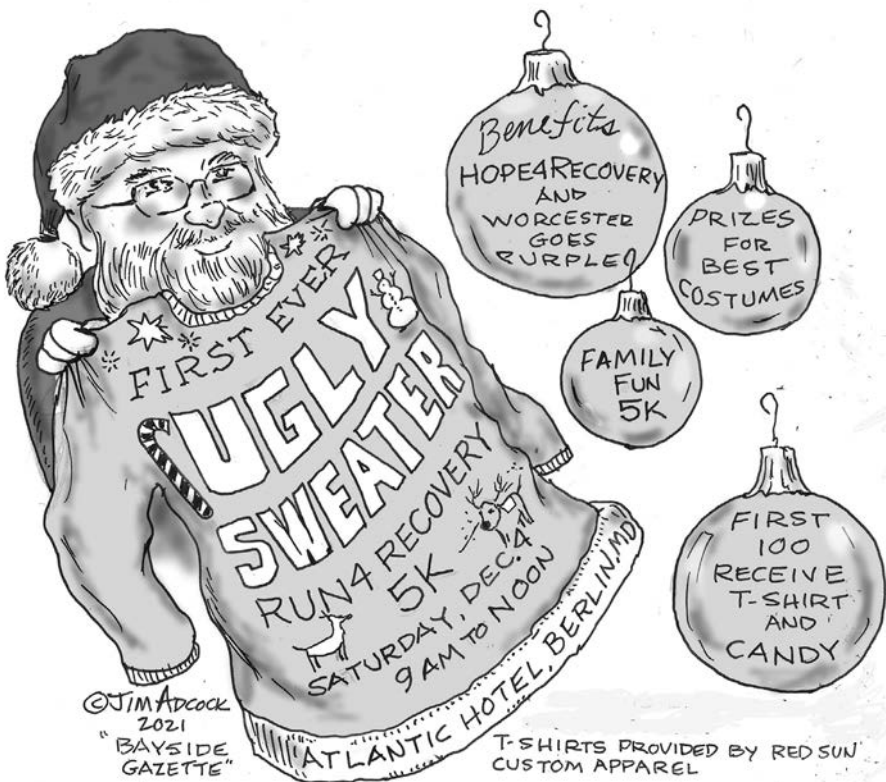 FIRST EVER
UGLY
SWEATER
RUN4 RECOVERY
5K
SATURDAY, DEC. 4
9 AM TO NOON
ATLANTIC HOTEL, BERLIN, MD
Benefits
HOPE4RECOVERY
AND
WORCESTER
GOES
PURPLE
PRIZES
FOR
BEST
COSTUMES
FAMILY
FUN
5K
FIRST
100
RECEIVE
T-SHIRT
AND
CANDY
©JIM ADCOCK
2021
"BAYSIDE
GAZETTE"
T-SHIRTS PROVIDED BY RED SUN
CUSTOM APPAREL